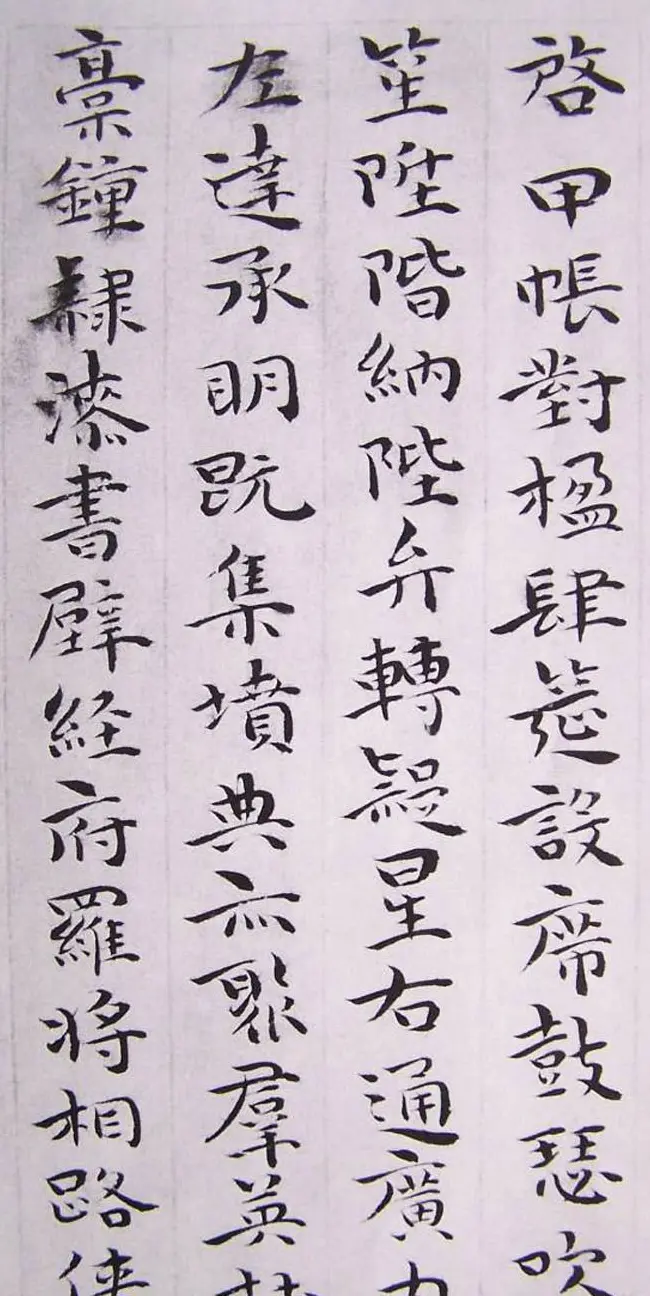 啓甲帳對楹肆筵設席鼓瑟吹
笙陞階納陛弁轉疑星右通廣
左達承明既集墳典亦聚羣英杜
槀鐘隸漆書壁経府羅将相路俠